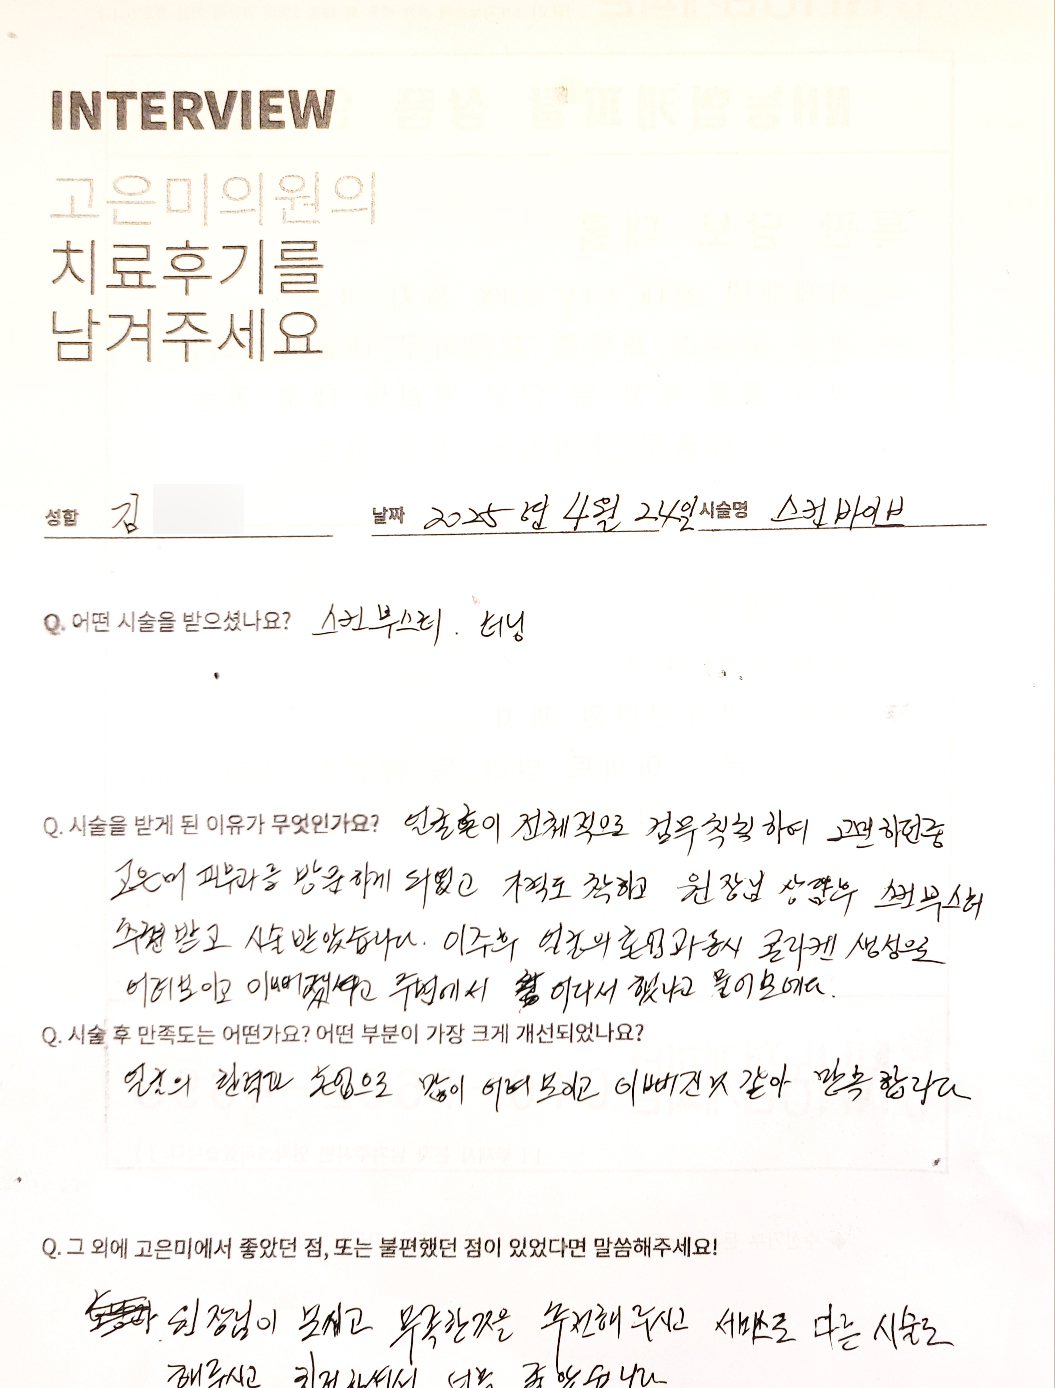 INTERVIEW
고은미의원의
치료후기를
남겨주세요
성함 김 날짜 2025년 4월 24일 시술명 스킨바이브
Q. 어떤 시술을 받으셨나요? 스킨부스터. 터닝
Q. 시술을 받게 된 이유가 무엇인가요? 얼굴톤이 전체적으로 검무칙칙하여 고민하던중
고은미 피부과를 방문하게 되었고 가격도 착하고 원장님 상담후 스킨부스터
추천받고 시술받았습니다. 이후 얼굴의 톤업과동시 콜라겐 생성으로
어려보이고 이뻐졌다고 주변에서 어디서 했냐고 물어보네요.
Q. 시술 후 만족도는 어떤가요? 어떤 부분이 가장 크게 개선되었나요?
얼굴의 탄력과 톤업으로 많이 어려보이고 이뻐진것 같아 만족합니다
Q. 그 외에 고은미에서 좋았던 점, 또는 불편했던 점이 있었다면 말씀해주세요!
원장님이 보시고 부족한것을 추천해주시고 서비스로 다른 시술도
해주시고 친절하셔서 너무 좋았습니다